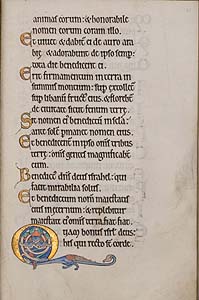 animas eorum: & honorabile
nomen eorum coram illo.
Et uiuet & dabit' ei de auro ara
bie & adorabunt de ipso semp:
tota die benedicent ei.
Erit firmamentum in terra in
summis montium: sup extollet
sup libanum fruct' eius & floreb't
de ciuitate sicut fenum terre.
Sit nomen ei' benedictum in sela:
ante sole pmanet nomen eius.
Et benedicent' in ipso omnes tribus
terre: oms gentes magnificabt
eum.
Benedict' dns deus israhel: qui
facit mirabilia solus.
Et benedictum nomen maiestatis
eius in eternum: & replebitur
maiestate ei' omnis terra, fiat fiat.
Quam bonus isrl deus:
his qui recto st' corde.